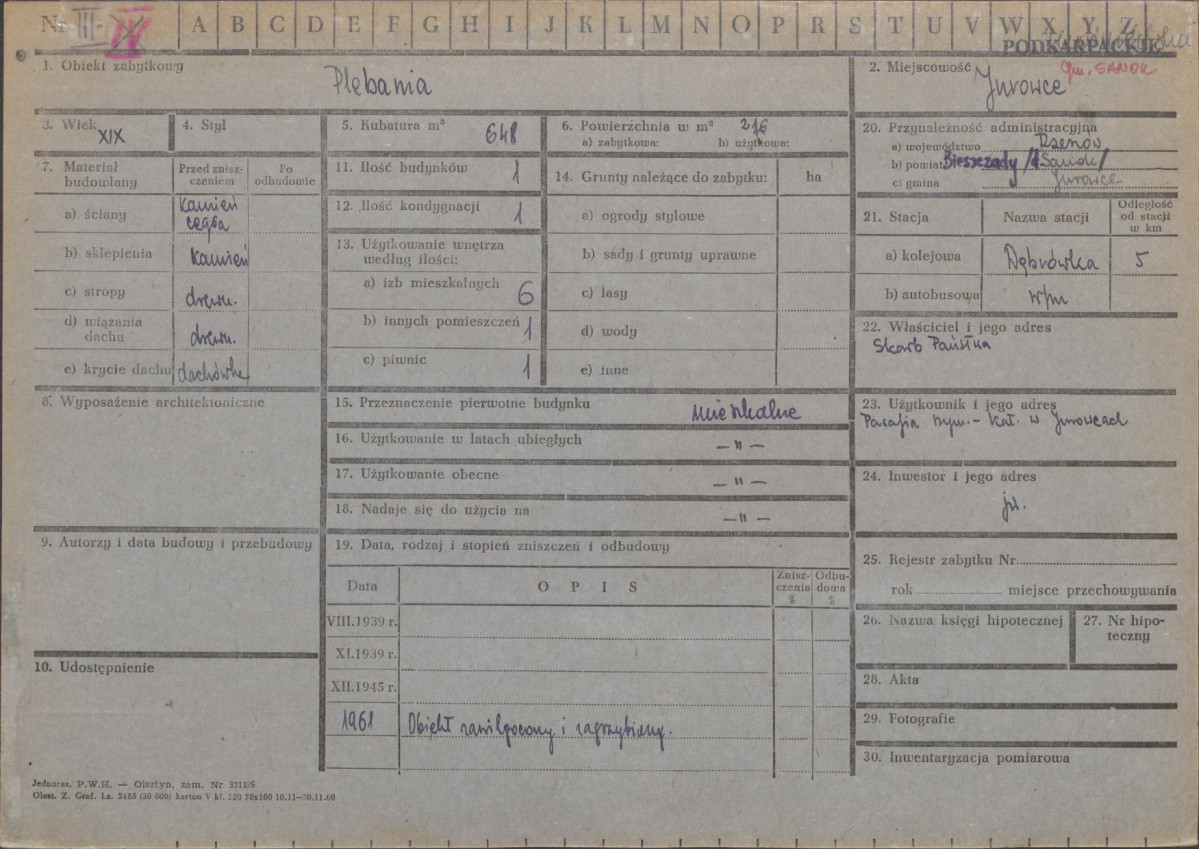 Nr III-IV A B C D E F G H I J K L M N O P R S T U V W X Y Z
PODKARPACKIE
1. Obiekt zabytkowy
Plebania
2. Miejscowość gm. SANOK
Jurowce
3. Wiek
XIX
4. Styl
5. Kubatura m³ 648
6. Powierzchnia w m² 216
a) zabytkowa: b) użytkowa:
7. Materiał budowlany
Przed zniszczeniem
Po odbudowie
a) ściany kamień cegła
b) sklepienia kamień
c) stropy drewn.
d) wiązania dachu drewn.
e) krycie dachu dachówka
8. Wyposażenie architektoniczne
9. Autorzy i data budowy i przebudowy
10. Udostępnienie
11. Ilość budynków 1
12. Ilość kondygnacji 1
13. Użytkowanie wnętrza
według ilości:
a) izb mieszkalnych 6
b) innych pomieszczeń 1
c) piwnic 1
14. Grunty należące do zabytku: ha
a) ogrody stylowe
b) sady i grunty uprawne
c) lasy
d) wody
e) inne
15. Przeznaczenie pierwotne budynku mieszkalne
16. Użytkowanie w latach ubiegłych — " —
17. Użytkowanie obecne — " —
18. Nadaje się do użycia na — " —
19. Data, rodzaj i stopień zniszczeń i odbudowy
Data OPIS Zniszczenia % Odbudowa %
VIII.1939 r.
XI.1939 r.
XII.1945 r.
1961 Obiekt zawilgocony i zagrzybiony.
20. Przynależność administracyjna
a) województwo Rzeszów
b) powiat Bieszczady /d. Sanok/
c) gmina Jurowce
21. Stacja Nazwa stacji Odległość od stacji w km
a) kolejowa Dąbrówka 5
b) autobusowa w/m
22. Właściciel i jego adres
Skarb Państwa
23. Użytkownik i jego adres
Parafia rzym.-kat. w Jurowcach
24. Inwestor i jego adres
jw.
25. Rejestr zabytku Nr
rok miejsce przechowywania
26. Nazwa księgi hipotecznej
27. Nr hipoteczny
28. Akta
29. Fotografie
30. Inwentaryzacja pomiarowa
Jednoraz. P.W.H. — Olsztyn, zam. Nr 3215/S
Olszt. Z. Graf. Lz. 2485 (30 000) karton V kl. 220 70x100 10.11—30.11.60